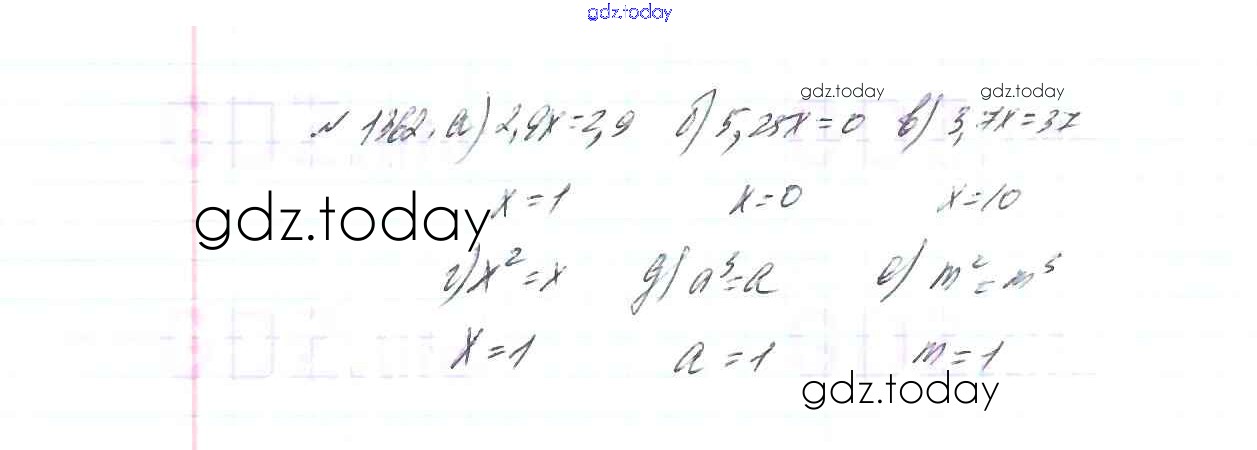 gdz.today
gdz.today gdz.today
№ 1362. а) 2,9x=2,9 б) 5,25x=0 в) 3,7x=37
x=1 x=0 x=10
gdz.today
г) x²=x д) a³=a е) m²=m³
x=1 a=1 m=1
gdz.today